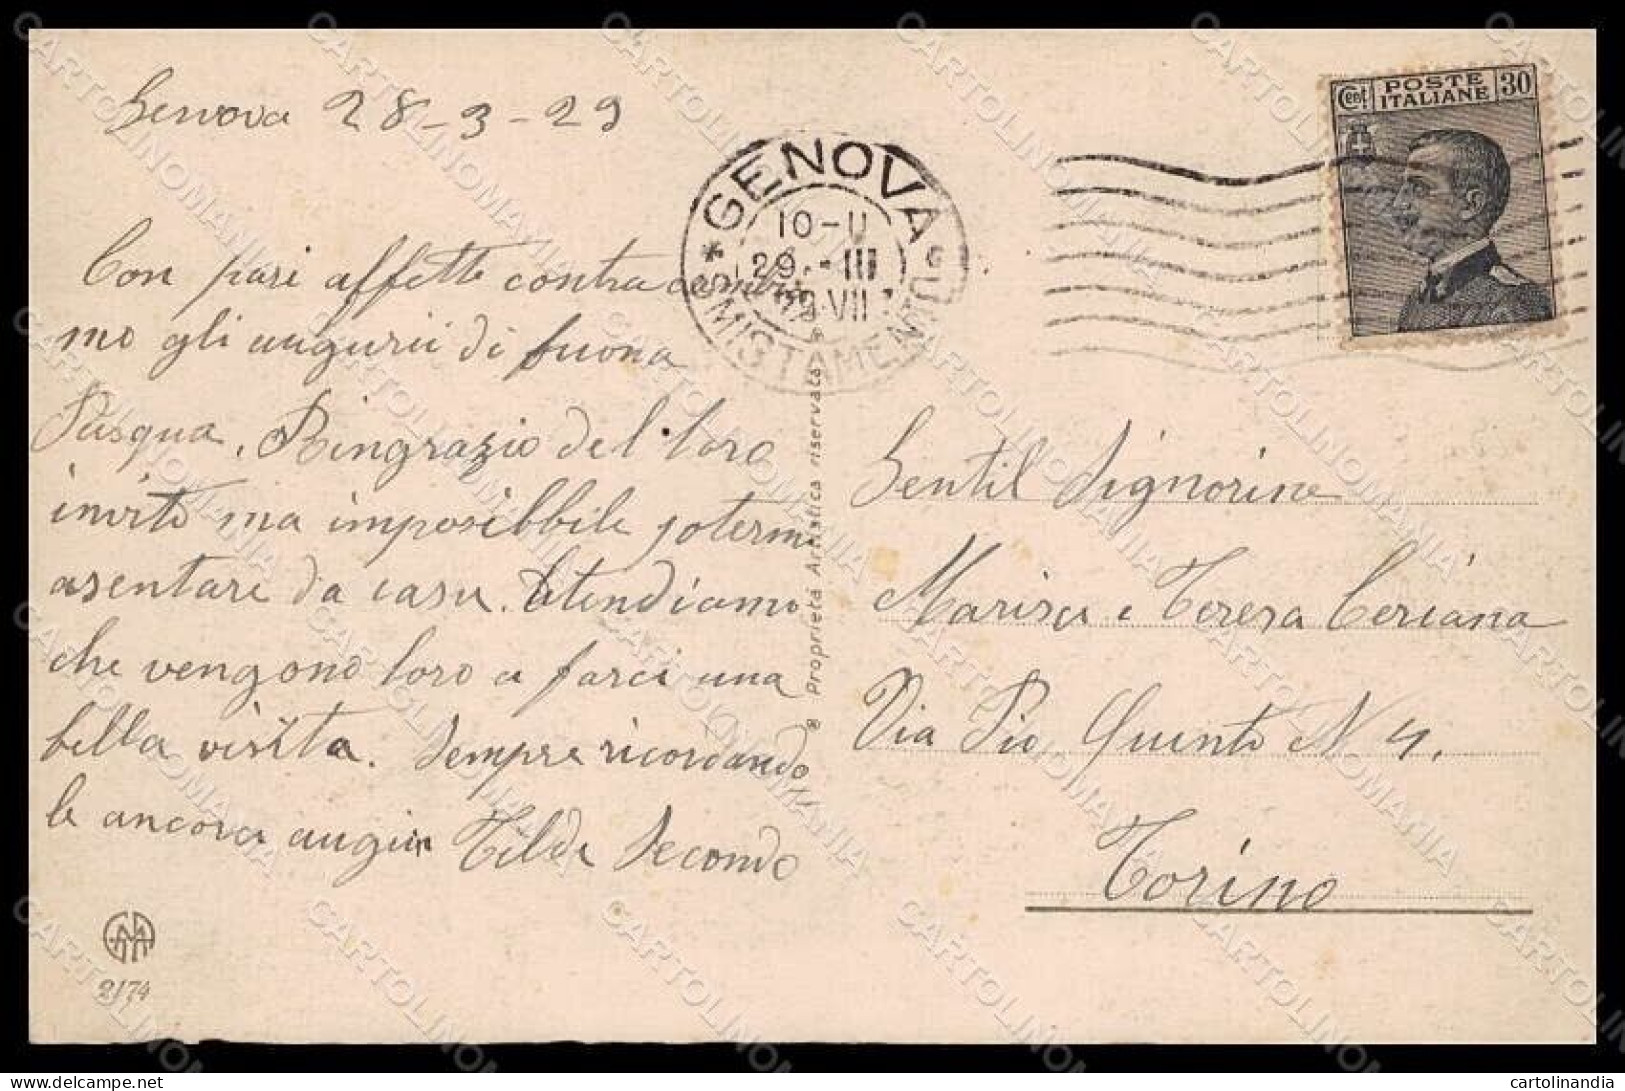 Genova 28-3-29
Con pari affetto contracambia
mo gli augurii di buona
Pasqua. Ringrazio del loro
invito ma impossibbile potermi
asentare da casa. Atendiamo
che vengono loro a farci una
bella visita. Sempre ricordando
le ancora auguri Tilde Secondo
GENOVA
10-11
29.-III
29.VII
SMISTAMENTO
Cent POSTE 30
ITALIANE
Proprietà Artistica riservata
Gentil Signorine
Marisa e Teresa Ceriana
Via Pio Quinto N 4.
Torino
2174
CARTOLINOMANIA
cartolinandia